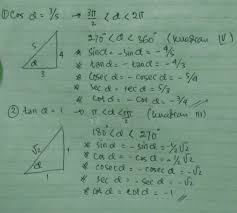 ① Cos α = 3/5 → 3π/2 < α < 2π
270° < α < 360° (kuadran IV)
5 4 α 3
* sin α = -sin α = -4/5
* tan α = -tan α = -4/3
* cosec α = -cosec α = -5/4
* sec α = sec α = 5/3
* cot α = -cot α = -3/4
② tan α = 1 → π < α < 3π/2
180° < α < 270° (kuadran III)
√2 1 α 1
* sin α = -sin α = -1/2√2
* cos α = -cos α = -1/2√2
* cosec α = -cosec α = -√2
* sec α = -sec α = -√2
* cot α = cot α = -1